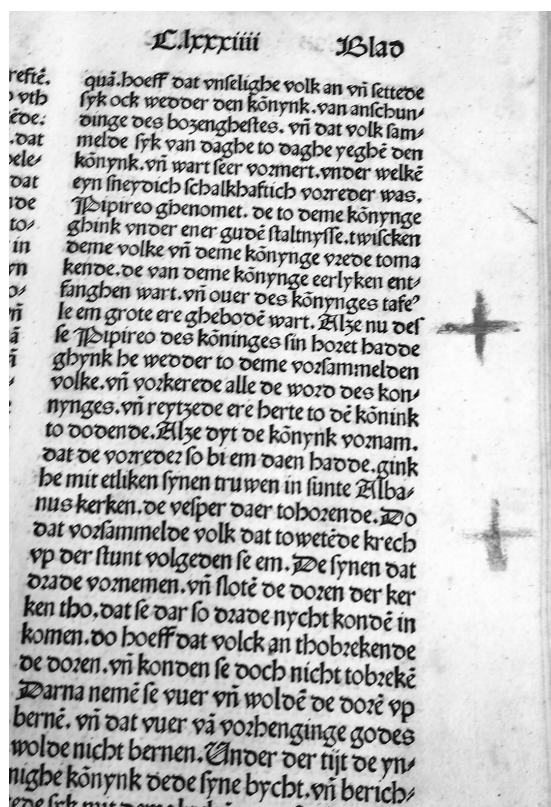 C.lxxxiiii Blad
quā.hoeff dat vnselighe volk an vn̄ settede
syk ock wedder den kōnynk.van anschun⸗
dinge des bozengheſtes. vn̄ dat volk sam⸗
melde syk van daghe to daghe yeghē den
kōnynk.vn̄ wart seer vormert.vnder welkē
eyn sneydich schalkhaftich vorreder was.
Pipireo ghenomet. de to deme kōnynge
ghink vnder ener gudē staltnysse.twiscken
deme volke vn̄ deme kōnynge vrede toma
kende.de van deme kōnynge eerlyken ent⸗
fanghen wart.vn̄ ouer des kōnynges tafe⸗
le em grote ere ghebodē wart. Alze nu des
se Pipireo des kōninges sin horet hadde
ghynk he wedder to deme vorsammelden
volke.vn̄ vorkerede alle de word des kon⸗
nynges.vn̄ reytzede ere herte to dē kōnink
to dodende.Alze dyt de kōnynk vornam.
dat de vorreder so bi em daen hadde.gink
he mit etliken synen truwen in sunte Alba⸗
nus kerken.de vesper daer tohorende.Do
dat vorsammelde volk dat towetēde krech
vp der stunt volgeden se em.De synen dat
drade vornemen.vn̄ slotē de doren der ker
ken tho.dat se dar so drade nycht kondē in
komen.do hoeff dat volck an thobrekende
de doren.vn̄ konden se doch nicht tobrekē
Darna nemē se vuer vn̄ woldē de dorē vp
bernē. vn̄ dat vuer vā vorhenginge godes
wolde nicht bernen.Under der tijt de yn⸗
nighe kōnynk dede syne bycht.vn̄ berich⸗